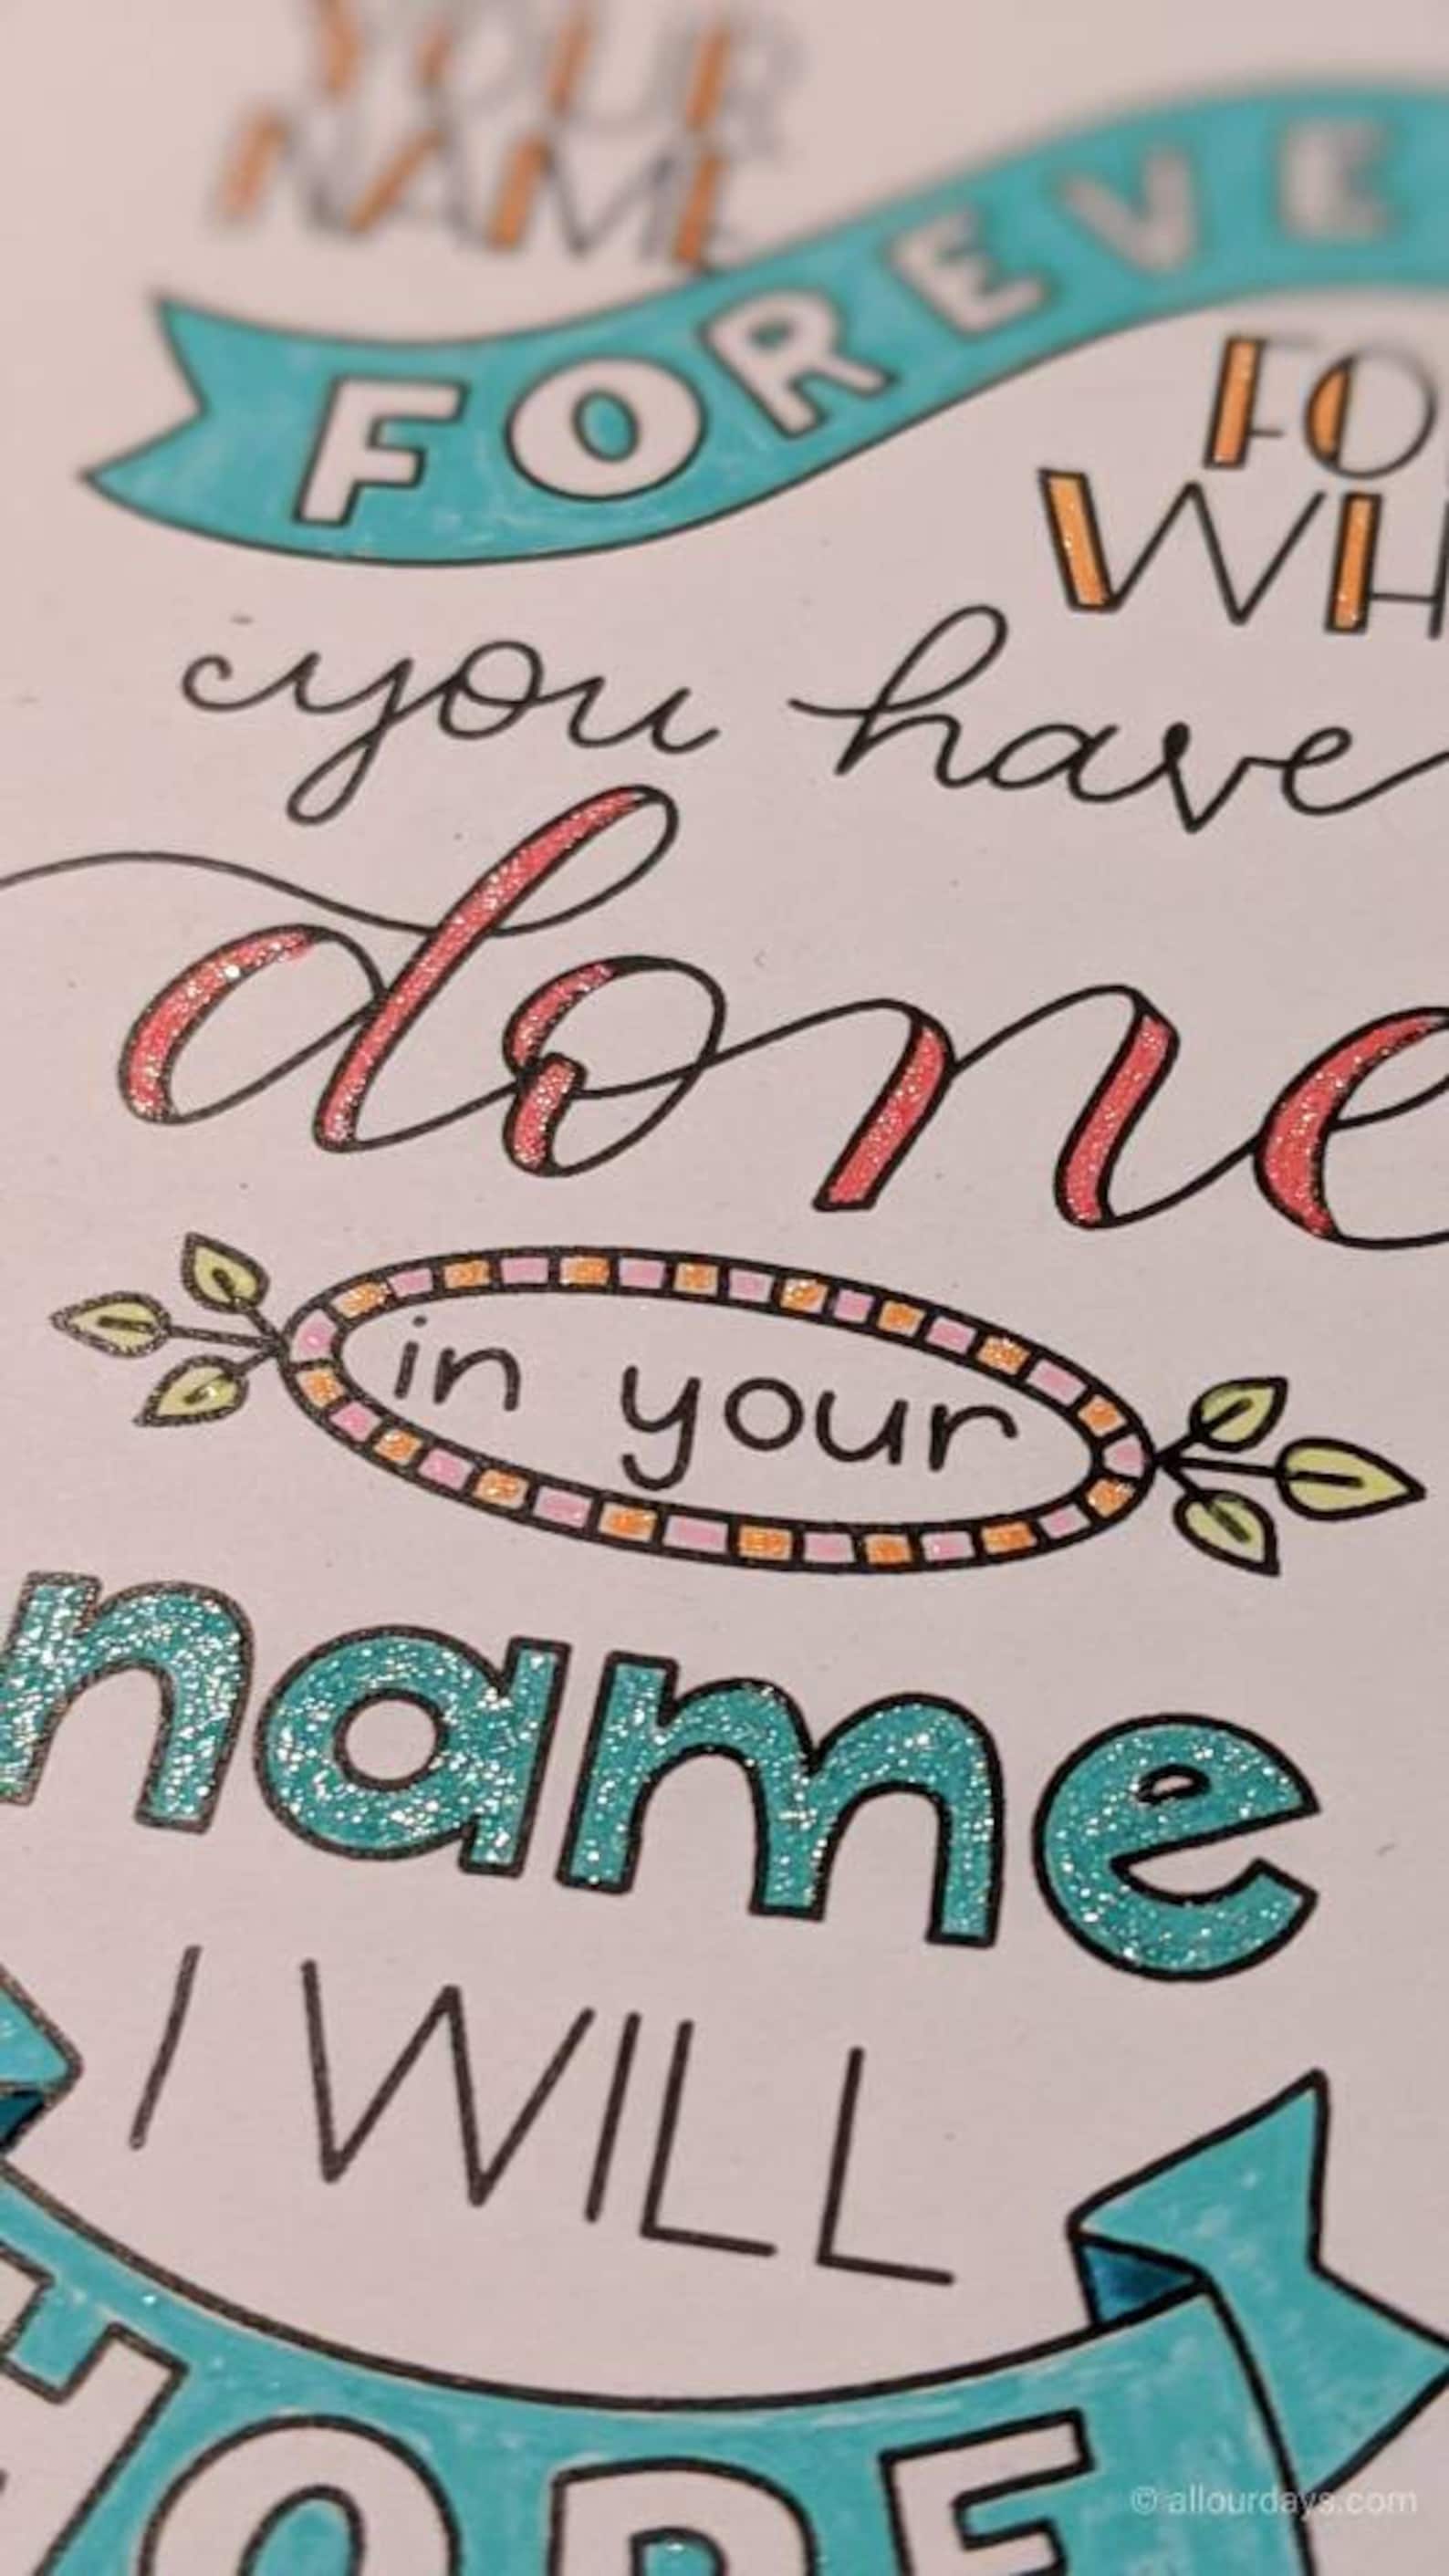 YOUR
NAME
FOREVE
FO
WH
you have
done
in your
name
I WILL
HOPE
© allourdays.com